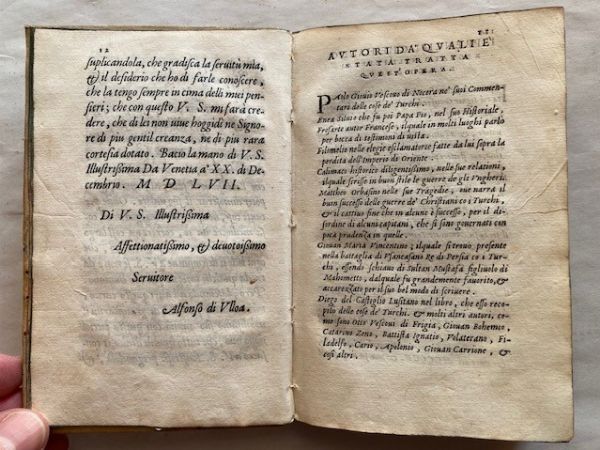 12
suplicandola, che gradisca la seruitù mia,
& il desiderio che ho di farle conoscere,
che la tengo sempre in cima delli miei pen
sieri; che con questo V. S. mi farà cre
dere, che di lei non uiue hoggidì ne Signore
di più gentil creanza, ne di più rara
cortesia dotato. Bacio la mano di V. S.
Illustrissima Da Venetia a' XX. di De-
cembrio. M D LVII.
Di V. S. Illustrissima
Affettionatissimo, & deuotissimo
Seruitore
Alfonso di Vlloa.
AVTORI DA' QVALI E
STATA TRATTA
QUEST'OPERA.
PAolo Giouio Vescouo di Nocera ne' suoi Commen
tari delle cose de' Turchi.
Enea Siluio che fu poi Papa Pio, nel suo Historiale.
Frosarte autor Francese, ilquale in molti luoghi parlo
per bocca di testimoni di uista.
Filomelio nelle egloghe esclamatorie fatte da lui sopra la
perdita dell'Imperio di Oriente.
Calimaco historico diligentissimo, nelle sue relationi,
ilquale scrisse in buon stile le guerre de gli Vngheri.
Mattheo Orbasino nelle sue Tragedie, oue narra il
buon successo delle guerre de' Christiani co i Turchi,
& il cattiuo fine che in alcune è successo, per il di-
sordine di alcuni capitani, che si sono gouernati con
poca prudenza in quelle.
Giouan Maria Vincentino; ilquale si trouò presente
nella battaglia di Re di Persia co i Tur-
chi, essendo schiauo di Sultan Mustafà figliuolo di
Mahometto, dalquale fu grandemente fauorito, &
accarezzato per il suo bel modo di scriuere.
Diego del Castiglio Lusitano nel libro, che esso reco-
pilò delle cose de' Turchi. & molti altri autori, co-
me sono Otto Vescouo di Frigia, Giouan Bohemico,
Catarino Zeno, Battista Ignatio, Volaterano, Fi-
ladelfo, Cario, Apolonio, Giouan Carrione, &
così altri.